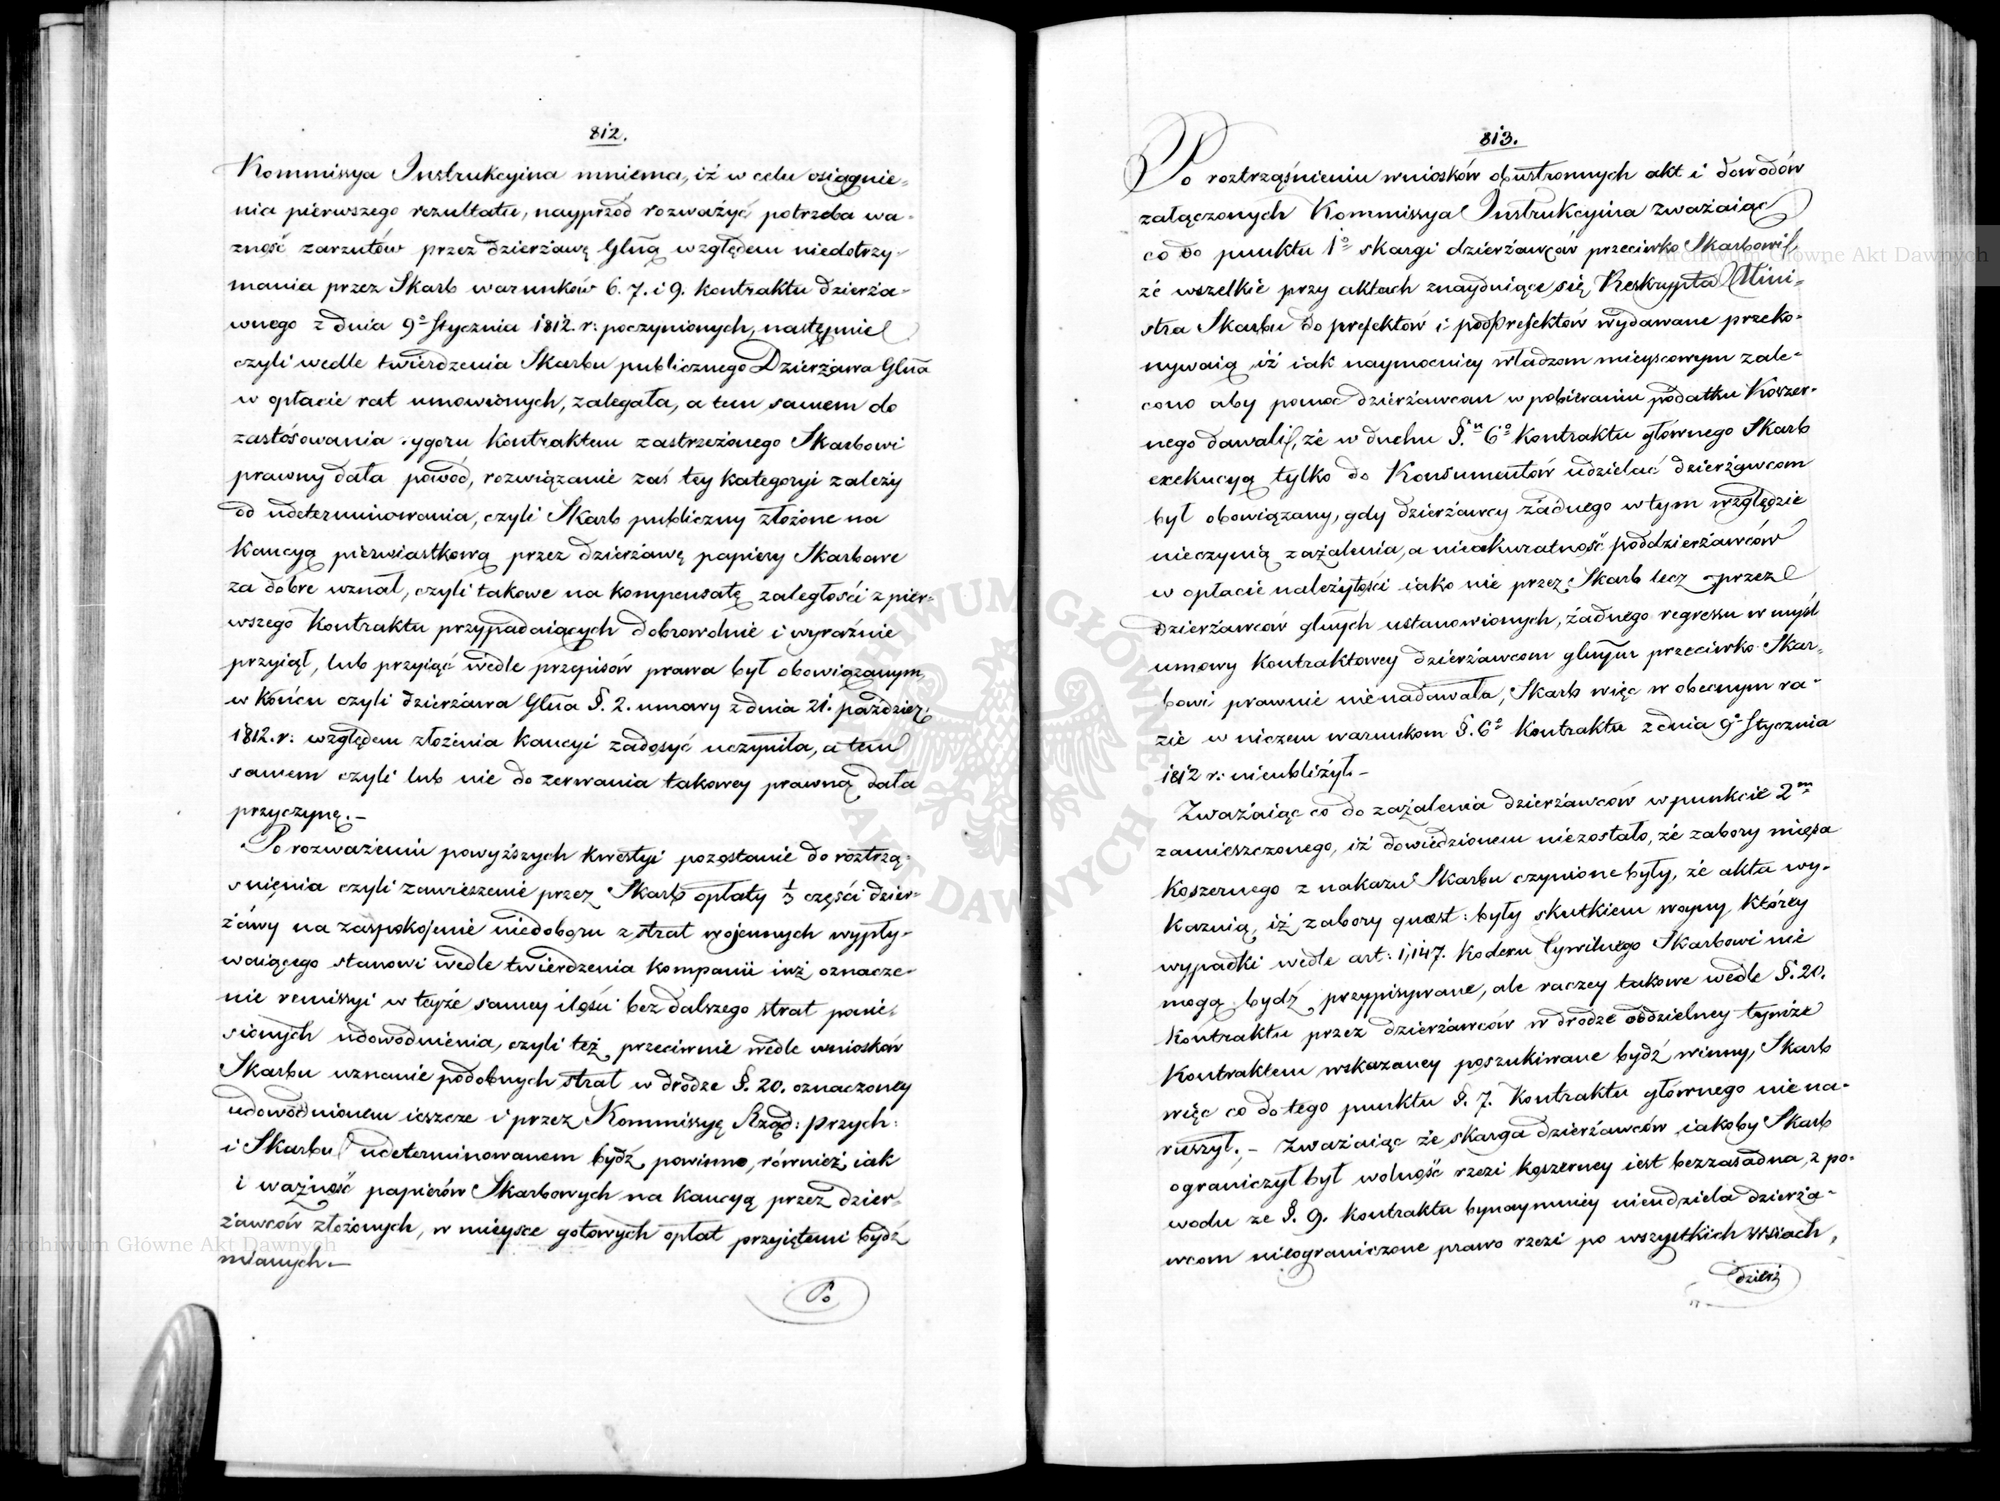 812.
Kommissya Instrukcyina mniema, iż w celu osiągnie=
nia pierwszego rezultatu, nayprzód rozważyć potrzeba wa=
żność zarzutów przez dzierżawę Glną względem niedotrzy=
mania przez Skarb warunków 6. 7. i 9. kontraktu dzierża=
wnego z dnia 9º Stycznia 1812. r: poczynionych, następnie
czyli wedle twierdzenia Skarbu publicznego Dzierżawa Glna
w opłacie rat umowionych, zalegała, a tem samem do
zastósowania rygoru kontraktem zastrzeżonego Skarbowi
prawny dała powód, rozwiązanie zaś tey kategoryi zależy
od udeterminowania, czyli Skarb publiczny złożone na
Kaucyą pierwiastkową przez dzierżawę papiery Skarbowe
za dobre uznał, czyli takowe na kompensatę zaległości z pier=
wszego Kontraktu przypadaiących dobrowolnie i wyraźnie
przyiął, lub przyiąć wedle przepisów prawa był obowiązanym,
w końcu czyli dzierżawa Glna §. 2. umowy z dnia 21. paździer:
1812. r: względem złożenia kaucyi zadosyć uczyniła, a tem
samem czyli lub nie do zerwania takowey prawną dała
przyczynę.–
Po rozważeniu powyższych kwestyi pozostanie do roztrzą=
śnięnia czyli zawieszenie przez Skarb opłaty ⅓ części dzier=
żawy na zaspokojenie niedoboru z strat wojennych wypły=
waiącego stanowi wedle twierdzenia kompanii iuż oznacze=
nie remissyi w teyże samey ilości bez dalszego strat ponie=
sionych udowodnienia, czyli też przeciwnie wedle wniosków
Skarbu uznanie podobnych strat w drodze §. 20. oznaczoney
udowodnionem ieszcze i przez Kommissyę Rząd: Przych:
i Skarbu udeterminowanem bydź powinno, również iak
i ważność papierów Skarbowych na kaucyą przez dzier=
żawców złożonych, w mieysce gotowych opłat przyiętemi bydź
mianych.–
Po
813.
Po roztrząśnieniu wniosków obustronnych akt i dowodów
załączonych Kommissya Instrukcyina zważaiąc
co do punktu 1º skargi dzierżawców przeciwko Skarbowi,
że wszelkie przy aktach znayduiące się Reskrypta Mini=
stra Skarbu do prefektów i podprefektów wydawane przeko=
nywaią iż iak naymocniey władzom mieyscowym zale=
cono aby pomoc dzierżawcom w pobieraniu podatku Koszer=
nego dawali, że w duchu §.u 6º kontraktu głównego Skarb
exekucyą tylko do Konsumentów udzielać dzierżawcom
był obowiązany, gdy dzierżawcy żadnego w tym względzie
nieczynią zażalenia, a nieakuratność poddzierżawców
w opłacie należytości iako nie przez Skarb lecz przez
Dzierżawców głnych ustanowionych, żadnego regressu w myśl
umowy kontraktowey dzierżawcom głnym przeciwko Skar=
bowi prawnie nienadawała, Skarb więc w obecnym ra=
zie w niczem warunkom §. 6º kontraktu z dnia 9º Stycznia
1812 r: nieubliżył.–
Zważaiąc co do zażalenia dzierżawców w punkcie 2m
zamieszczonego, iż dowiedzionem niezostało, że zabory mięsa
koszernego z nakazu Skarbu czynione były, że akta wy=
kaznią, iż zabory quaest: były skutkiem woyny, którey
wypadki wedle art: 1,147. Kodexu Cywilnego Skarbowi nie
mogą bydź przypisywane, ale raczey takowe wedle §. 20.
Kontraktu przez dzierżawców w drodze oddzielney tymże
Kontraktem wskazaney poszukiwane bydź winny, Skarb
więc co do tego punktu §. 7. Kontraktu głównego niena=
ruszył.,– Zważaiąc że skarga dzierżawców iakoby Skarb
ograniczył był wolność rzezi koszerney iest bezzasadna, z po=
wodu ze §. 9. kontraktu bynaymniey nieudziela dzierża=
wcom nieograniczone prawo rzezi po wszystkich wsiach,
dzierż